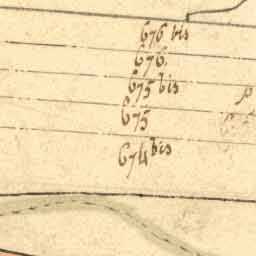 676 bis
676.
675 bis
675
674 bis